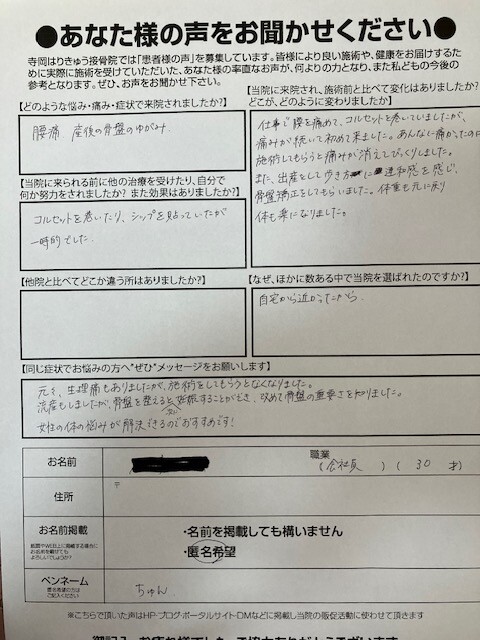 ●あなた様の声をお聞かせください●
寺岡はりきゅう接骨院では「患者様の声」を募集しています。皆様により良い施術や、健康をお届けするた
めに実際に施術を受けていただいた、あなた様の率直なお声が、何よりの力となり、また私どもの今後の
参考となります。ぜひ、お声をお聞かせ下さい。
【どのような悩み・痛み・症状で来院されましたか?】
腰痛 産後の骨盤のゆがみ
【当院に来られる前に他の治療を受けたり、自分で
何か努力をされましたか? また効果はありましたか?】
コルセットを巻いたり、シップを貼っていたが
一時的でした。
【当院に来院され、施術前と比べて変化はありましたか?
どこが、どのように変わりましたか】
仕事で腰を痛めて、コルセットを巻いていましたが、
痛みが続いて初めて来ました。あんなに痛かったのに
施術してもらうと痛みが消えてびっくりしました。
また、出産をして歩き方に違和感を感じ、
骨盤矯正をしてもらいました。体重も元に戻り
体も楽になりました。
【他院と比べてどこか違う所はありましたか?】
【なぜ、ほかに数ある中で当院を選ばれたのですか?】
自宅から近かったから。
【同じ症状でお悩みの方へ"ぜひ"メッセージをお願いします】
元々、生理痛もありましたが、施術をしてもらうとなくなりました。
流産もしましたが、骨盤を整えると妊娠することができ、改めて骨盤の重要さを知りました。
女性の体の悩みが解決できるのでおすすめです!
お名前
職業
(会社員)(30才)
住所
〒
お名前掲載
紙面やWEB上に掲載する場合に
お名前を載せても
よろしいでしょうか?
・名前を掲載しても構いません
・匿名希望
ペンネーム
匿名希望の方は
ご記入ください
ちゅん
※こちらで頂いた声はHP・ブログ・ポータルサイト・DMなどに掲載し当院の販促活動に使わせて頂きます